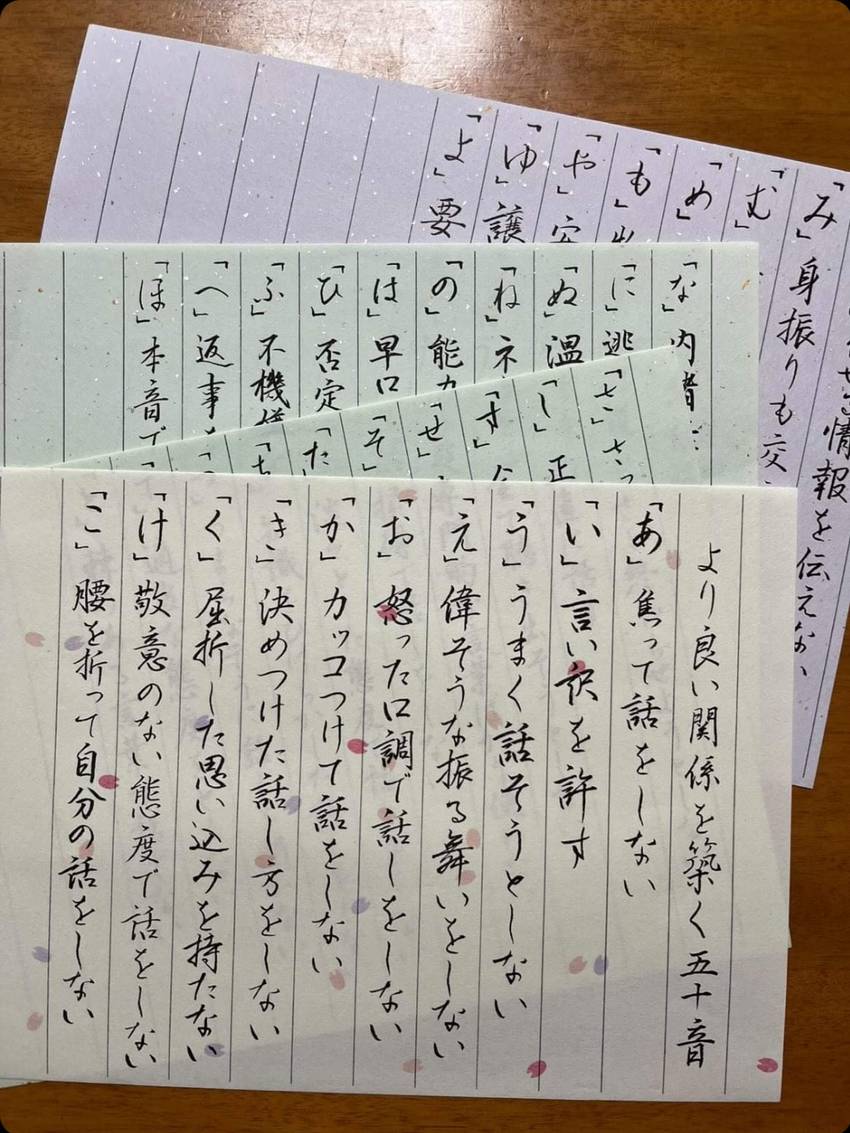 より良い関係を築く五十音
「あ」焦って話をしない
「い」言い訳を許す
「う」うまく話そうとしない
「え」偉そうな振る舞いをしない
「お」怒った口調で話しをしない
「か」カッコつけて話をしない
「き」決めつけた話し方をしない
「く」屈折した思い込みを持たない
「け」敬意のない態度で話をしない
「こ」腰を折って自分の話をしない
「さ」さっ
「し」正
「す」全
「せ」
「そ」
「た」
「な」内
「に」逃
「ぬ」温
「ね」ネ
「の」能力
「は」早口
「ひ」否定
「ふ」不機嫌
「へ」返事
「ほ」本音で
情報を伝えない
「み」身振りも交
「む」
「め」
「も」
「や」
「ゆ」譲
「よ」要